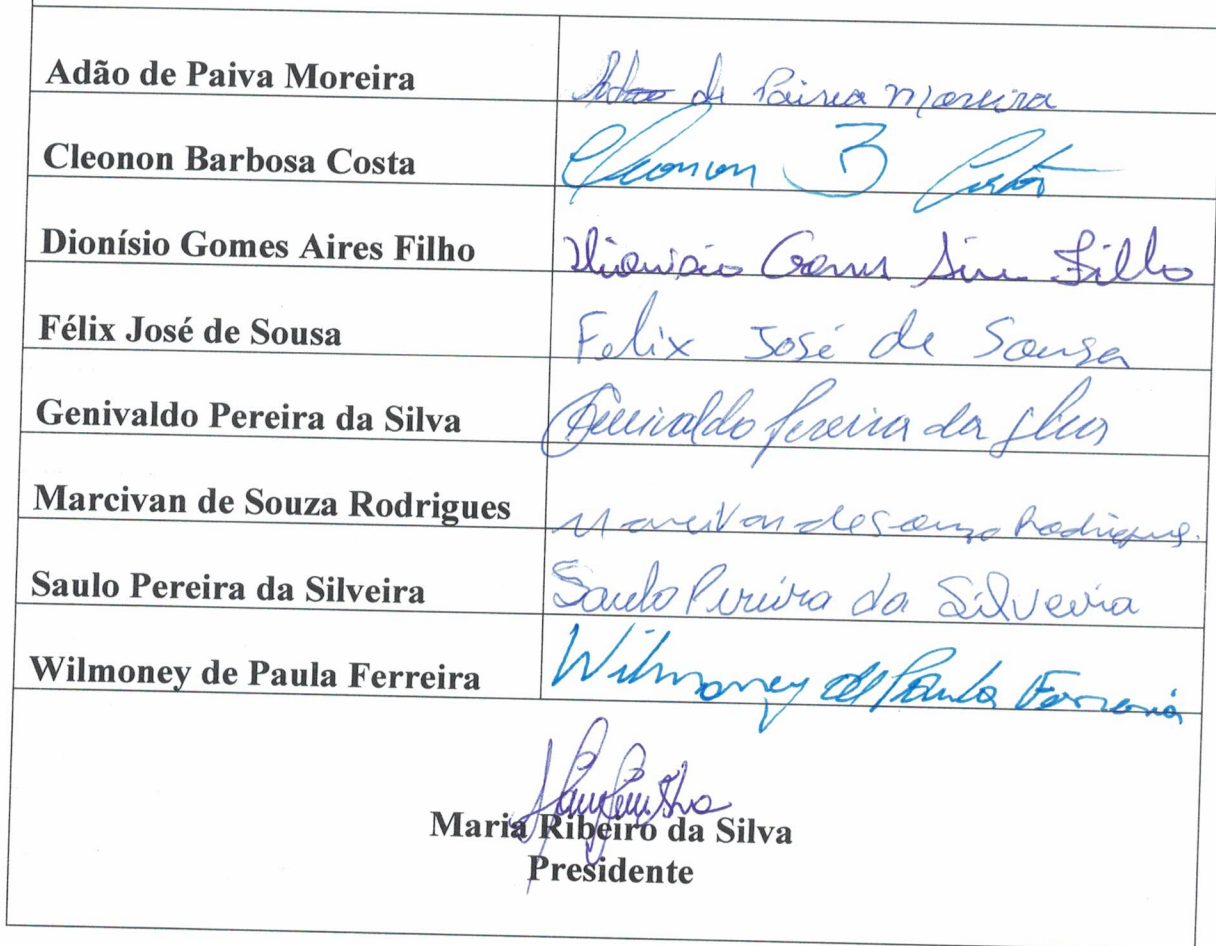 Adão de Paiva Moreira Adão de Paiva Moreira
Cleonon Barbosa Costa Cleonon B Costa
Dionísio Gomes Aires Filho Dionisio Gomes Filho
Félix José de Sousa Felix José de Sousa
Genivaldo Pereira da Silva Genivaldo Pereira da Silva
Marcivan de Souza Rodrigues Marcivan de Souza Rodrigues.
Saulo Pereira da Silveira Saulo Pereira da Silveira
Wilmoney de Paula Ferreira Wilmoney de Paula Ferreira
Maria Ribeiro da Silva
Presidente